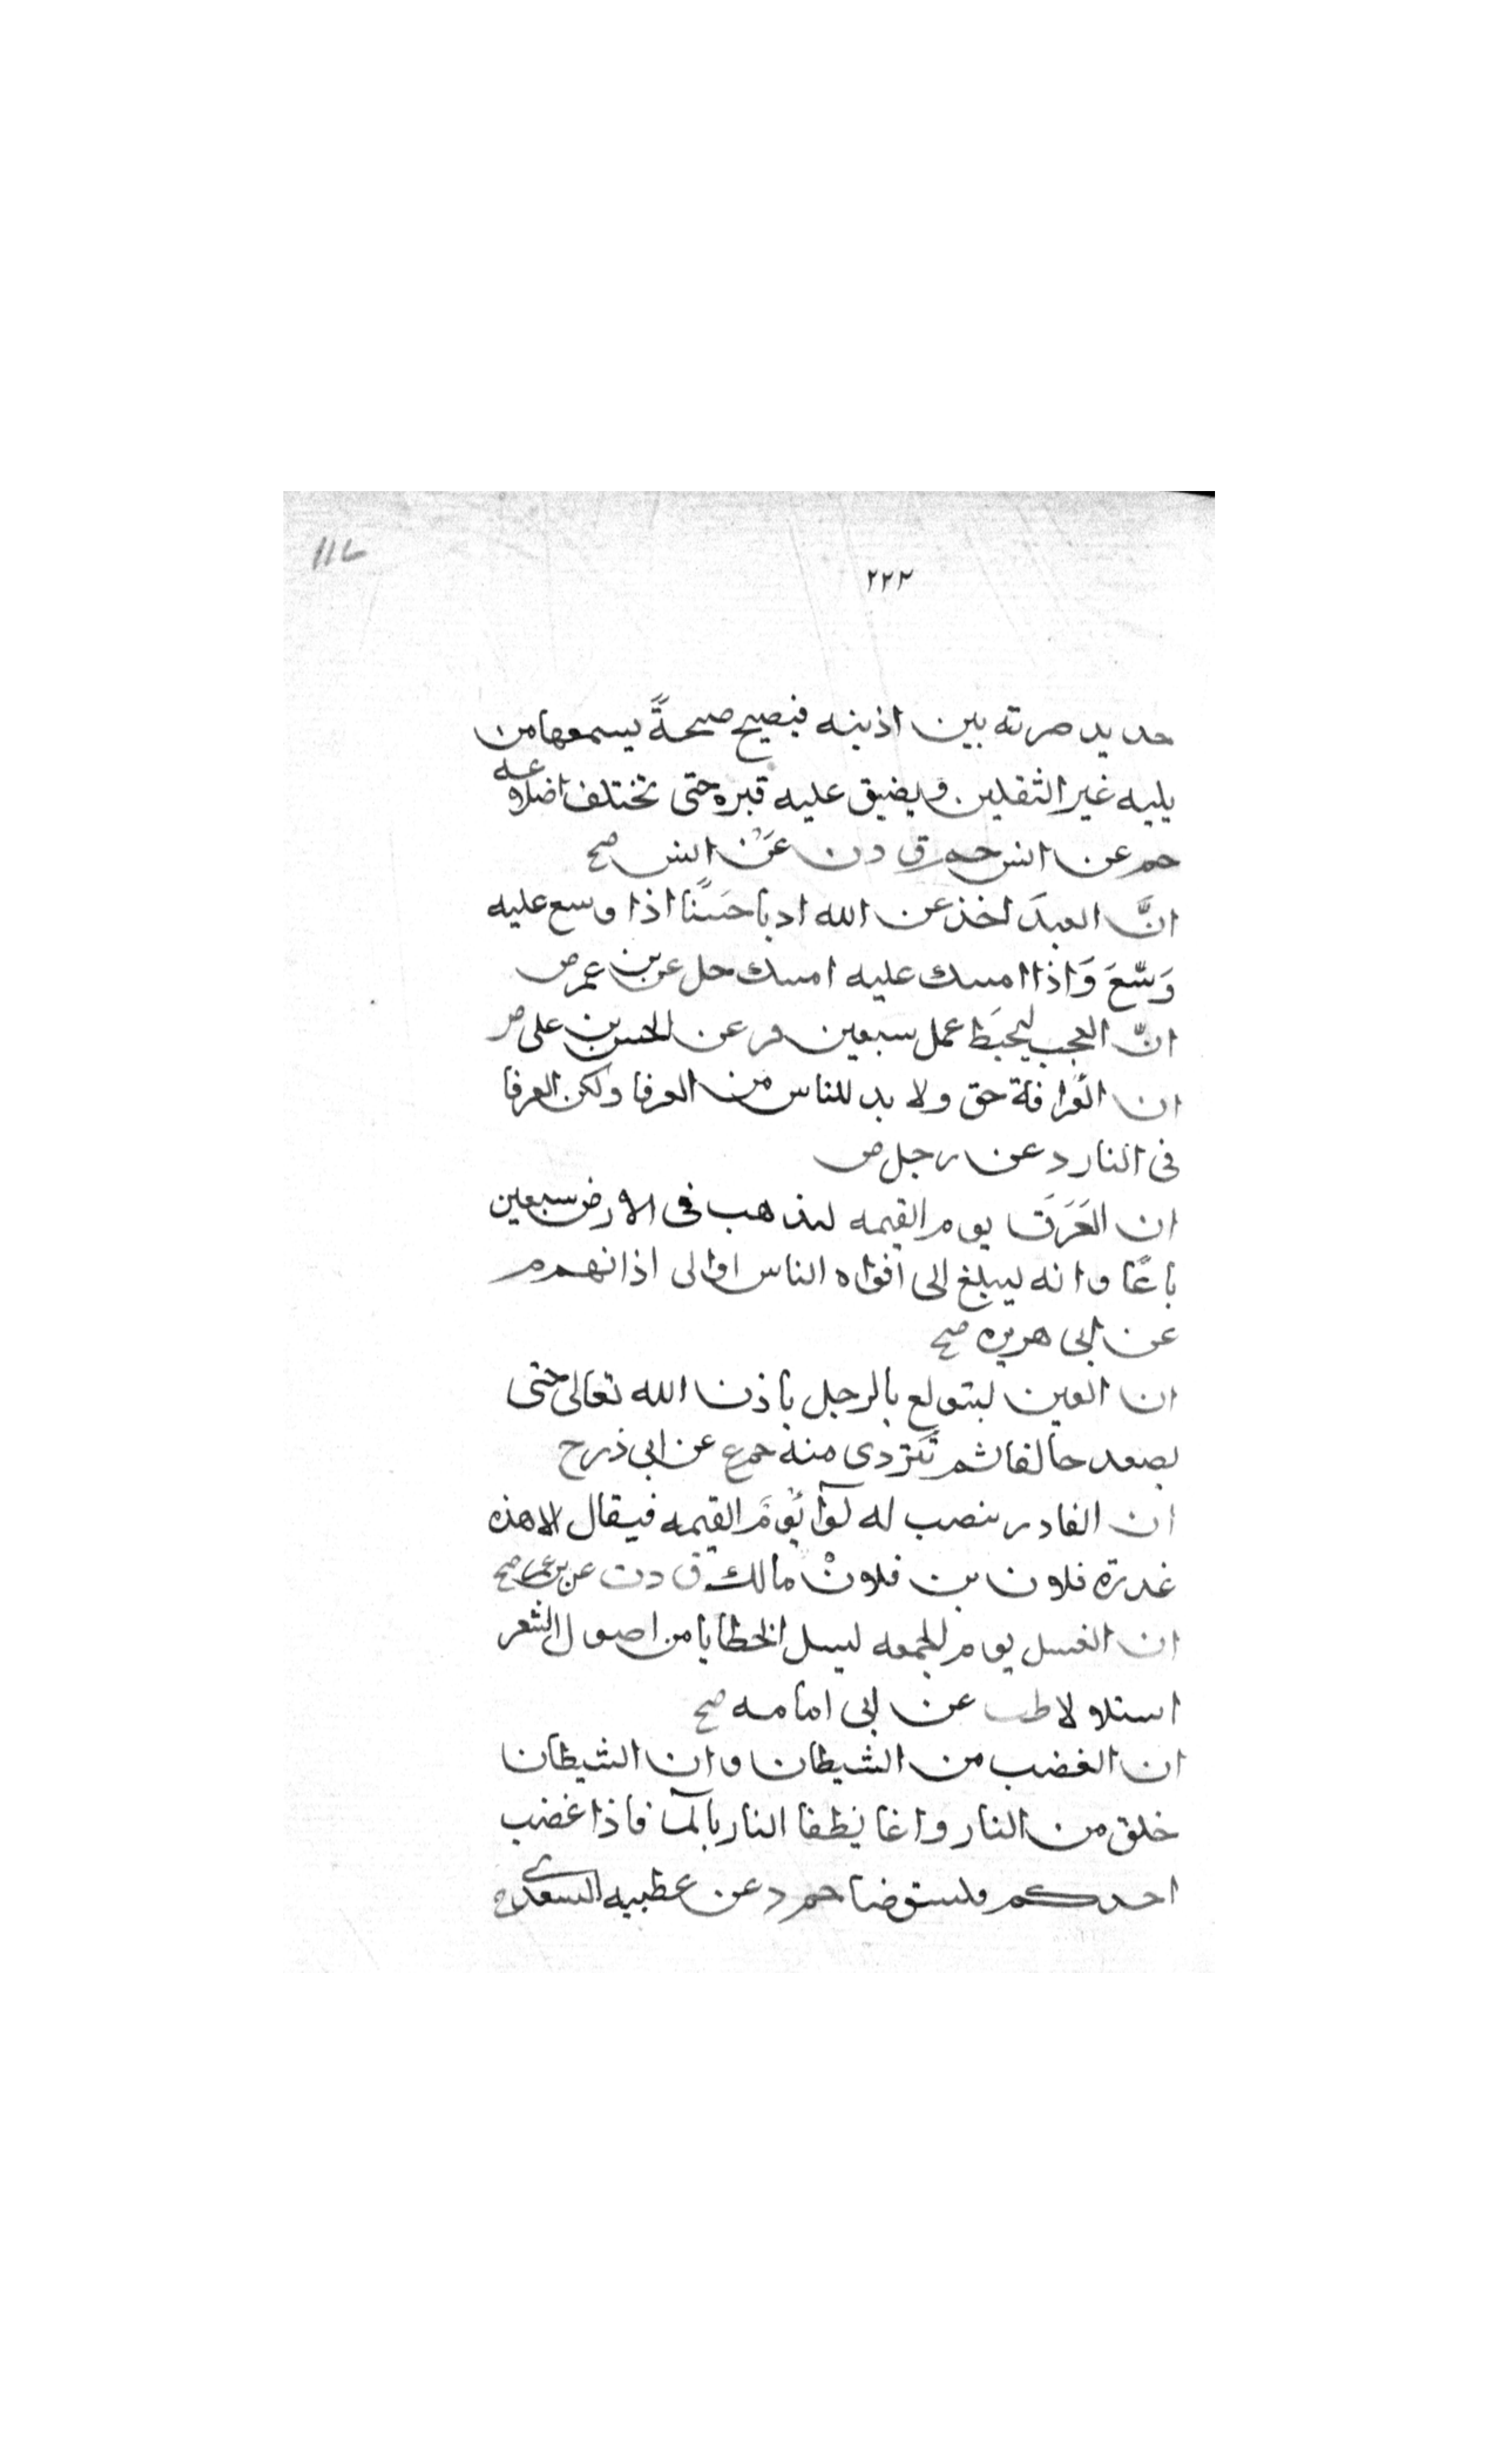 ١١٢
٢٢٣
حديد ضربة بين اذنيه فيصيح صيحةً يسمعها من
يليه غير الثقلين ويضيق عليه قبره حتى تختلف اضلاعه
حم عن انس حم ق د ن عَنْ انس صح
انَّ العبدَ اخذ عن الله ادبا حَسَنًا اذا وسع عليه
وَسَّعَ وَاذا امسك عليه امسك حل عن بن عمر ض
انّ العجب ليحبَط عمل سبعين فر عن الحسن بن على ض
ان العرافة حق ولا بد للناس من العرفا ولكن العرفا
فى النار د عن رجل ض
ان العَرَقَ يوم القيمه ليذهب فى الارض سبعين
باعًا وانه ليبلغ الى افواه الناس او الى اذانهم م
عن ابى هريره صح
ان العين لتولع بالرجل باذن الله تعالى حتى
يصعد حالقا ثم تَتردى منه حم ع عن ابى ذر ح
ان الغادر ينصب له لوآ يَوْمَ القيمه فيقال الا هذه
غدرة فلان بن فلانْ مالك ق د ت عن بن عمر صح
ان الغسل يوم الجمعه ليسل الخطايا من اصول الشعر
استلالا طب عن ابى امامه صح
ان الغضب من الشيطان وان الشيطان
خلق من النار وانما يطفا النار بالمآ فاذا غضب
احدكم فليتوضا حم د عن عطيه السعدى